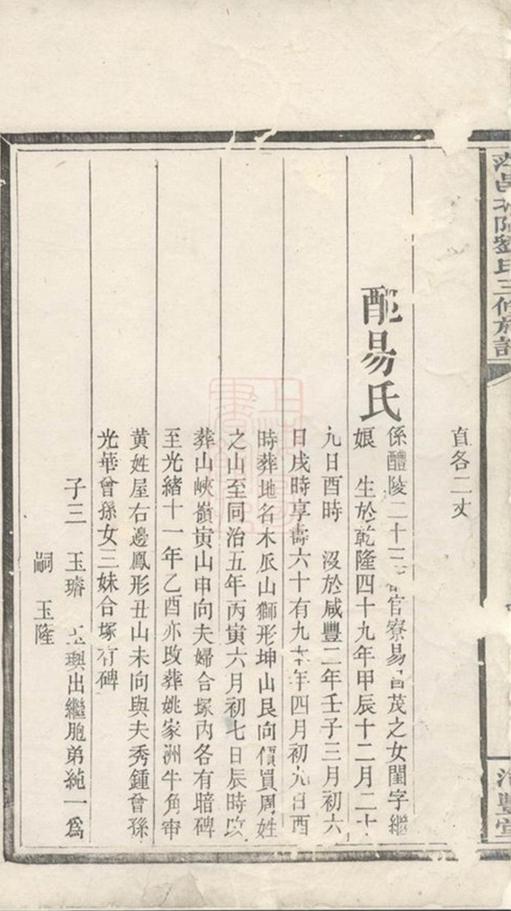 劉氏三修族譜
直各二丈
配易氏
係醴陵二十三官寮易昌茂之女閨字繼
娘 生於乾隆四十九年甲辰十二月二十
九日酉時 沒於咸豐二年壬子三月初六
日戌時享壽六十有九 年四月初九日酉
時葬地名木瓜山獅形坤山艮向價買周姓
之山至同治五年丙寅六月初七日辰時改
葬山峽嶺寅山申向夫婦合塚內各有暗碑
至光緒十一年乙酉亦改葬姚家洲牛角
黃姓屋右邊鳳形丑山未向與夫秀鍾會孫
光華曾孫女三妹合塚有碑
子三 玉璿 玉璵出繼胞弟純一為
嗣 玉隆